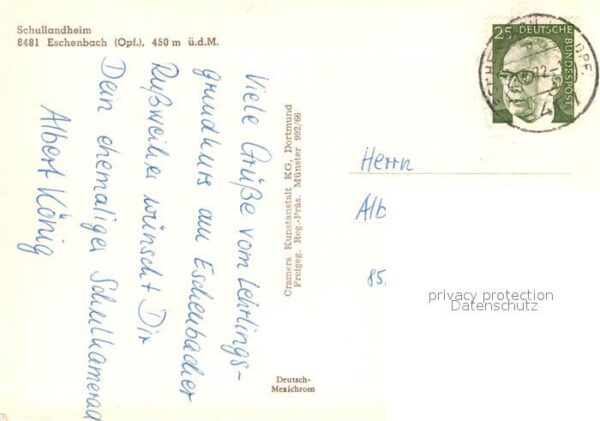 Schullandheim
8481 Eschenbach (Opf.), 450 m ü.d.M.
Viele Grüße vom Lehrlings-
grundkurs am Eschenbacher
Rußweiher wünscht Dir
Dein ehemaliger Schulkamerad
Albert König
Cramers Kunstanstalt KG, Dortmund
Freigeg. Reg.-Präs. Münster 992/66
Deutsch-
Mexichrom
25 DEUTSCHE
BUNDESPOST
Herrn
Alb
85.
privacy protection
Datenschutz